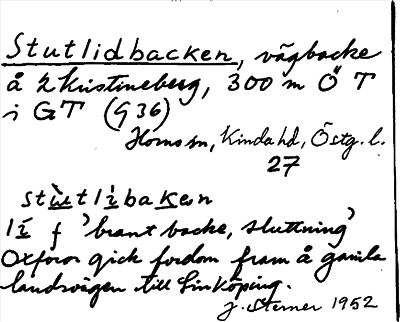 Stutlidbacken, vägbacke
å lKristineberg, 300 m Ö T
i GT (G 36)
Horns sn, Kinda hd, Östg. l.
27
stùtlìbakən
lí f 'brant backe, sluttning'
Oxforor gick fordom fram å gamla
landsvägen till Linköping.
J. Sterner 1952